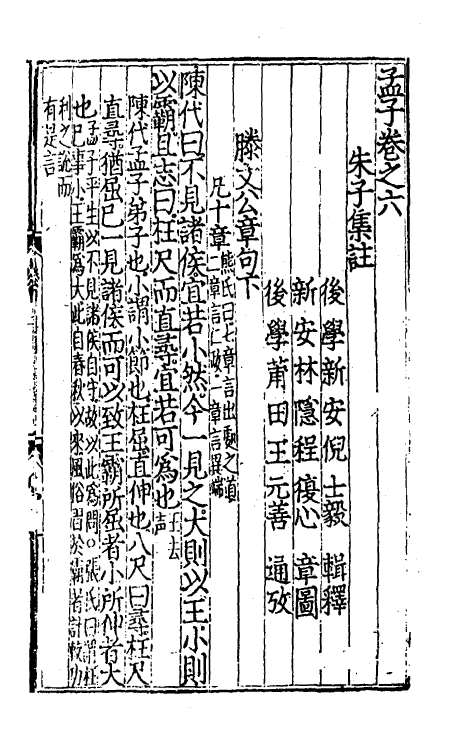 孟子卷之六
朱子集註
後學新安倪士毅輯釋
新安林隱程復心章圖
後學莆田王元善通攷
滕文公章句下
凡十章熊氏曰七章言出處之道
二章言仁政一章言異端
陳代曰不見諸侯宜若小然今一見之大則以王小則
以霸且志曰枉尺而直尋宜若可爲也王去
聲
陳代孟子弟子也小謂小節也枉屈直伸也八尺曰尋枉尺
直尋猶屈己一見諸侯而可以致王霸所屈者小所伸者大
也孟子平生以不見諸侯自守故以此爲問○張氏曰謂枉
己事小王霸爲大此自春秋以來風俗習於霸者計較功
利之說而
有是言